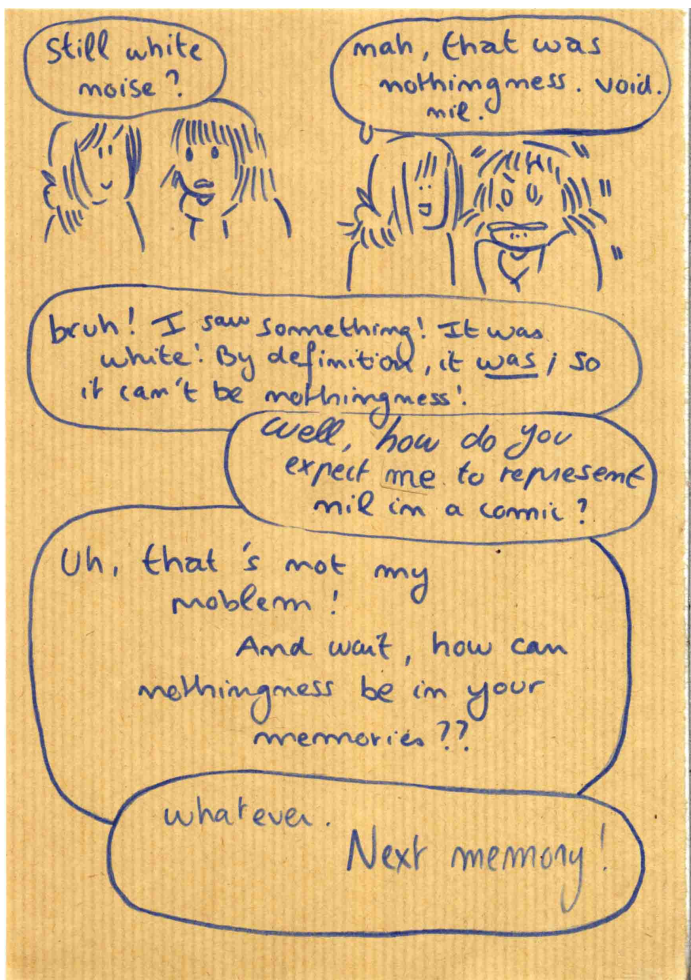 Still white
noise?
nah, that was
nothingness. void.
nil.
bruh! I saw something! It was
white! By definition, it was; so
it can't be nothingness!
Well, how do you
expect me to represent
nil in a comic?
Uh, that's not my
problem!
And wait, how can
nothingness be in your
memories??
whatever.
Next memory!